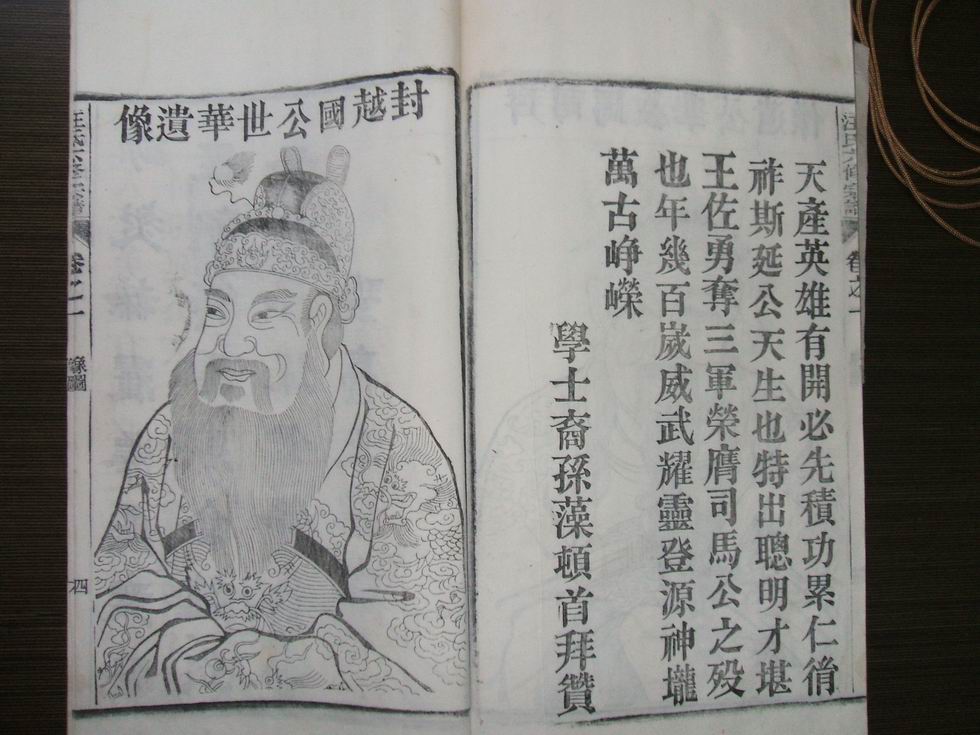 汪氏六修宗譜
卷之一
天產英雄有開必先積功累仁
祚斯延公天生也特出聰明才堪
王佐勇奪三軍榮膺司馬公之歿
也年幾百嵗威武耀靈登源神壠
萬古崢嶸
學士裔孫藻頓首拜讚
封越國公世華遺像
汪氏六修宗譜
卷之一
像圖
四